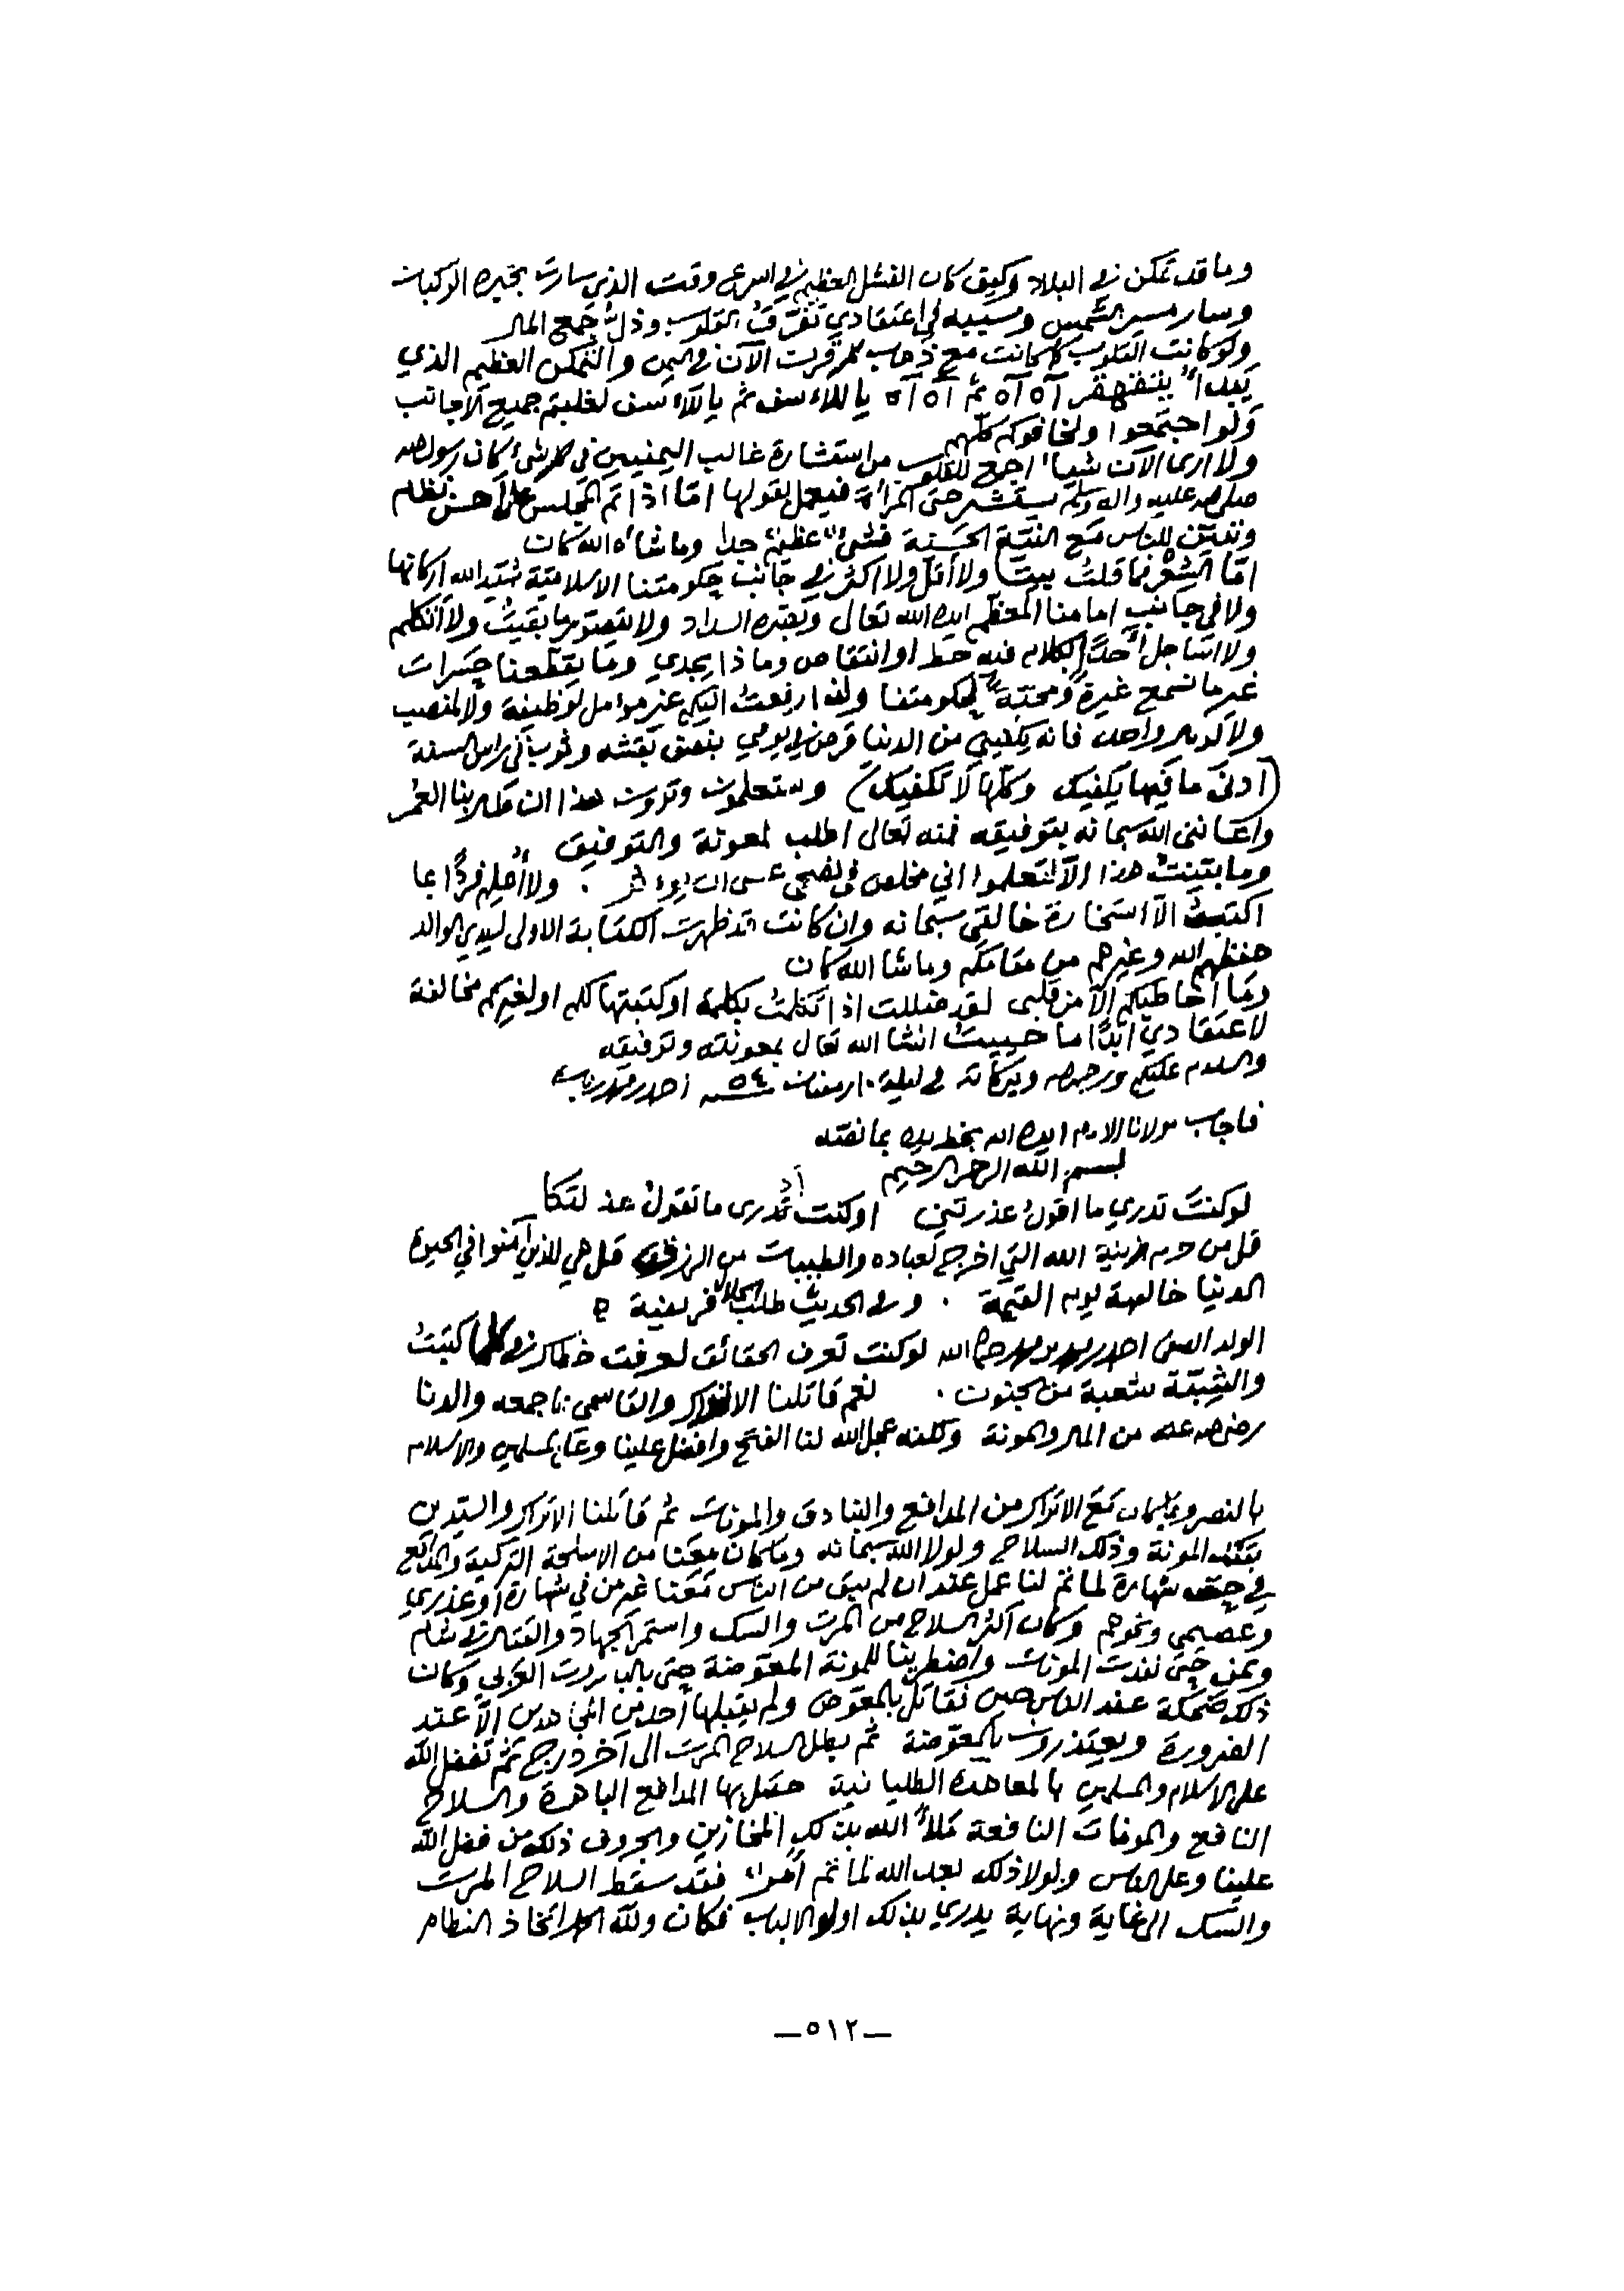 وما قد تمكن في البلاد وكيف كان الفشل العظيم في اسرع وقت الذي سارت بخبره الركبان
وسار مسير الشمس وسببه في اعتقادي تفرق القلوب وذلك جمع المال
ولو كانت القلوب كما كانت مع ذهاب الآن في اليمن والتمكن العظيم الذي
يبدأ بتقهقر آه آه ثم آه آه يا للأسف ثم يا للأسف لغلبتم جميع الأجانب
ولو اجتمعوا ولخافوكم كلهم
ولا ارى الآن شيأ اجمع للقلوب من استشارة غالب اليمنيين في كل شيء كان رسول الله
صلى الله عليه وآله وسلم يستشير حتى المرأة فيعمل بقولها امّا اذا تم المجلس على احسن نظام
وتعيّن للناس مع النيّة الحسنة فشيء عظيم جدا وما شاء الله كان
امّا الشعر فما قلت بيتا ولا أقل ولا اكثر في جانب حكومتنا الاسلامية شيّد الله اركانها
ولا في جانب امامنا المعظم ايده الله تعالى السداد ولا ما بقيت ولا أتكلم
ولا اساجل احدًا بكلام فيه حط او انتقاص وما ذا يجدي وما يقطعنا حسرات
غير ما نسمع غيرة ومحبّة لحكومتنا ولهذا رفعت اليكم غير مؤمل لوظيفة ولا لمنصب
ولا لدرهم واحد فانه يكفيني من الدنيا قرص في يومي وثوب في راس السنة
(ادنى ما فيها يكفيك وكلها لا تكفيك) وستعلمون وترون هذا ان طال بنا العمر
واعانني الله سبحانه بتوفيقه فمنه تعالى اطلب المعونة والتوفيق
وما بيّنت هذا الّا لتعلموا اني مخلص في نصحي عسى ان يؤثر . ولا أعلم فردًا بما
اكتب الّا استخارة خالقي سبحانه وان كانت قد ظهرت الكتابة الاولى لسيدي الوالد
حفظهم الله وغيرهم من مقامكم وما شا الله كان
وما أخاطبكم الّا من قلبي لقد ضللت اذا تكلمت بكلمة او كتبتها لكم او لغيركم مخالفة
لاعتقادي ابدًا ما حييت انشا الله تعالى بمعونته وتوفيقه
والسلام عليكم ورحمة الله وبركاته في ليلة ١٠ رمضان سنة ٥٤ احمد بن محمد
فاجاب مولانا الامام ايده الله بخط يده بما نصّه
بسم الله الرحمن الرحيم
لو كنتَ تدري ما اقول عذرتني اوكنتُ أدري ما تقول عذلتكا
قل من حرم زينة الله التي اخرج لعباده والطيبات من الرزق قل هي للذين آمنوا في الحيوة
الدنيا خالصة يوم القيمة . وفي الحديث طلب الحلال فريضة
الولد الصفي احمد بن محمد بن محمد الله لو كنت تعرف الحقائق لعرفت خطاك في كلما كتبتُ
والشبيبة شعبة من الجنون . نعم قاتلنا الاتراك والقاسمي باجمعه والدنا
رضي الله عنه من المال والمونة ولكنه عجل الله لنا الفتح وافضل علينا وعلى المسلمين والاسلام
بالنصر وبما كان مع الاتراك من المدافع والبنادق والمونات ثم قاتلنا الاتراك والسيدين
بتلك المونة وذلك السلاح ولولا الله سبحانه وما كان معنا من الاسلحة التركية والمدافع
في شهارة لما تم لنا عمل عند ان لم يبق من الناس معنا غير من في شهارة او عذري
وعصيمي ونحوهم وكان اكثر السلاح من المرت والسك واستمر الجهاد والقتال في شام
ويمن حتى نفدت المونات واضطرينا للمونة المعوّضة حتى بالبارود العربي وكان
ذلك ضحكة عند الناس حين نقاتل بالمعوّض ولم يقبلها أحد من المجاهدين الّا عند
الضرورة ويعتذرون بالمعوّضة ثم بطل السلاح المرت الى آخر درجة ثم تفضل الله
على الاسلام والمسلمين بالمعاهدة الطليانية حصل بها المدافع الباهرة والسلاح
النافع والمونات النافعة ملأ الله بذلك المخازين والجروف ذلك من فضل الله
علينا وعلى الناس ولولا ذلك بعد الله لما تم امرا فقد سقط السلاح المرت
والسك الى غاية ونهاية يدري بذلك اولو الالباب فكان ولله الحمد اتخاذ النظام
—٥١٢—